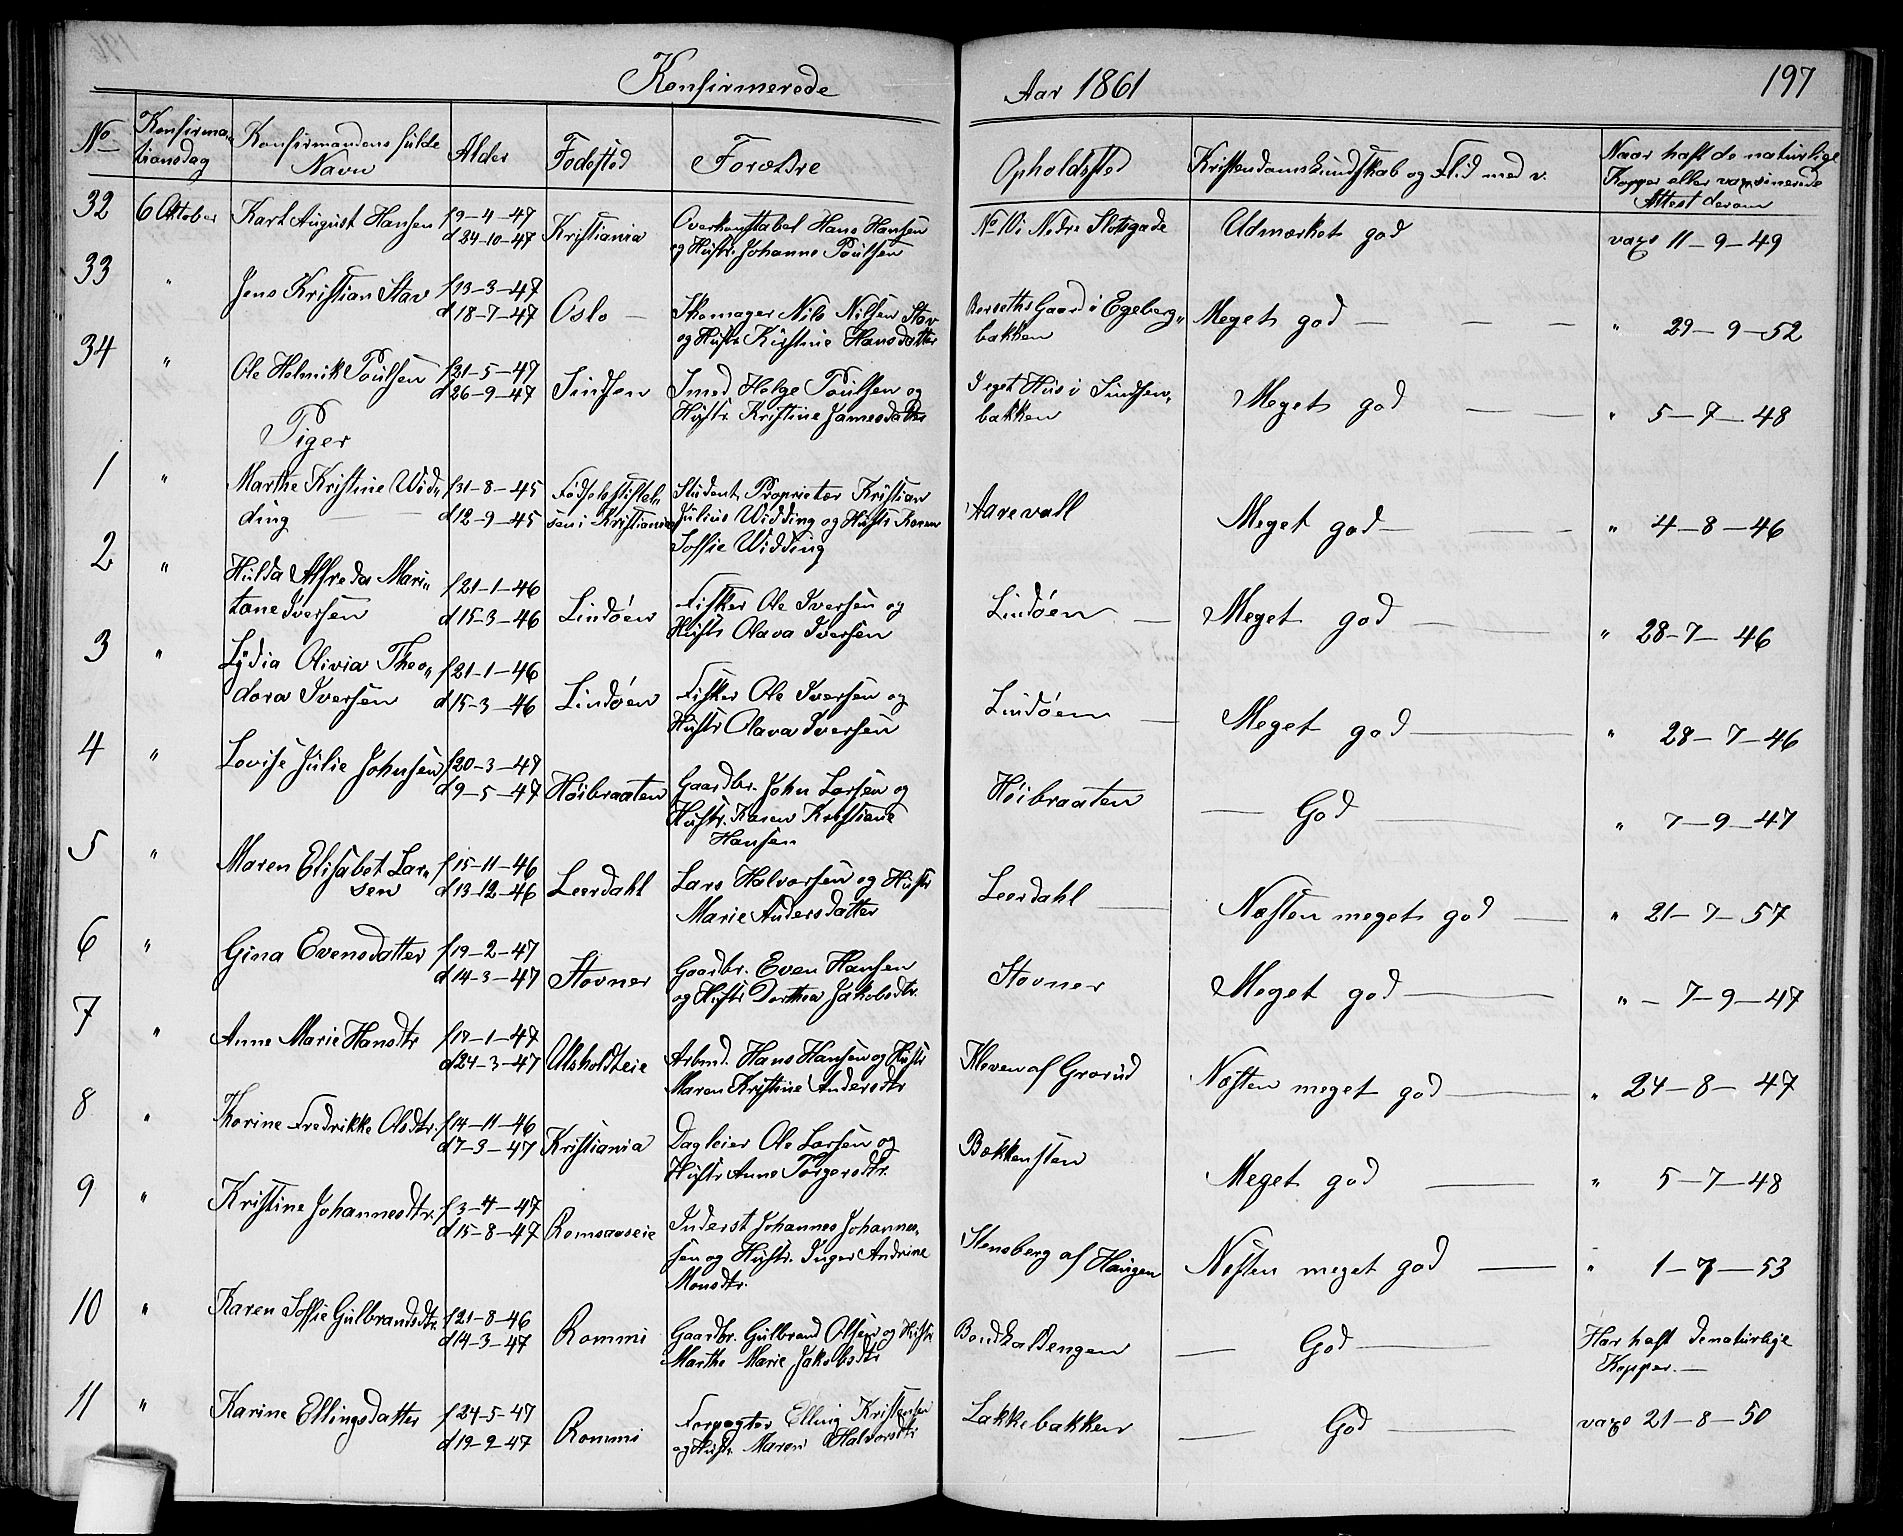 Konfirmerede Aar 1861 197
No Konfirma„tionsdag Konfirmandens fulde Navn Alder Fødested Forældre Opholdssted Kristendomskundskab og Flid med v. Naar haft de naturlige Kopper eller vaxsinerede Attest derom
32 6 Oktober Karl August Hansen f 9-4-47 Kristiania Overkonstabel Hans Hansen No 10 i Nedre Slotsgade Udmærket god vax 11-9-49
d 24-10-47 og Hustr. Johanne Poulsen
33 " Jens Kristian Stav f 13-3-47 Oslo — Skomager Nils Nilsen Stav Borseths Gaard i Egeberg„ Meget god — — — " 29-9-52
d 18-7-47 og Hustr Kirstine Hansdatter bakken
34 " Ole Helmik Poulsen f 21-5-47 Sinsen Smed Helge Poulsen og I eget Hus i Sindsen„ Meget god — — " 5-7-48
d 26-9-47 Hustr. Kristine Jamesdatter bakken
Piger
1 " Marthe Kristine Wid„ f 31-8-45 Fødselsstiftel„ Student, Proprietær Kristian Aarevall Meget god — — " 4-8-46
ding — d 12-9-45 sen i Kristiania Julius Widding og Hustr Karen
Soffie Widding
2 " Hulda Alfreda Mari„ f 21-1-46 Lindøen Fisker Ole Iversen og Lindøen — Meget god — " 28-7-46
tane Iversen d 15-3-46 Hustr Olava Iversen
3 " Lydia Olivia Theo„ f 21-1-46 Lindøen Fisker Ole Iversen og Lindøen — Meget god — " 28-7-46
dora Iversen d 15-3-46 Hustr Olava Iversen
4 " Lovise Julie Johnsen f 20-3-47 Høibraaten Gaardbr. John Larsen og Høibraaten — God — " 7-9-47
d 9-5-47 Hustr. Karen Kristiane
Hansen
5 " Maren Elisabet Lar„ f 15-11-46 Leerdahl Lars Halvorsen og Hustr Leerdahl — Næsten meget god — " 21-7-57
sen d 13-12-46 Marie Andersdatter
6 " Gina Evensdatter f 19-2-47 Stovner Gaardbr. Even Hansen Stovner Meget god — " - 7-9-47
d 14-3-47 og Hustr Dorthea Jakobsdtr.
7 " Anne Marie Hansdtr f 17-1-47 Ulsholdteie Arbmd. Hans Hansen og Hustr Kleven af Grorud Næsten meget god — " 24-8-47
d 24-3-47 Maren Kristine Andersdtr
8 " Karine Fredrikke Olsdtr. f 14-11-46 Kristiania Dagleier Ole Larsen og Bakkensten Meget god — " 5-7-48
d 7-3-47 Hustr Anne Torgersdtr.
9 " Kristine Johannesdtr. f 3-4-47 Romsaaseie Inderst Johannes Johannes„ Stensberg af Haugen Næsten meget god — " 1-7-53
d 15-8-47 sen og Hustr. Inger Andrine
Monsdtr.
10 " Karen Soffie Gulbrandsdtr. f 21-8-46 Rommi Gaardbr. Gulbrand Olsen og Hustr Bondkaldengen — God — Har haft de naturlige
d 14-3-47 Marthe Marie Jakobsdtr Kopper. —
11 " Karine Ellingsdatter f 24-5-47 Rommi Forpagter Elling Kristensen Lakkebakken — God — vax 21-8-50
d 19-9-47 og Hustr. Maren Halvorsdtr